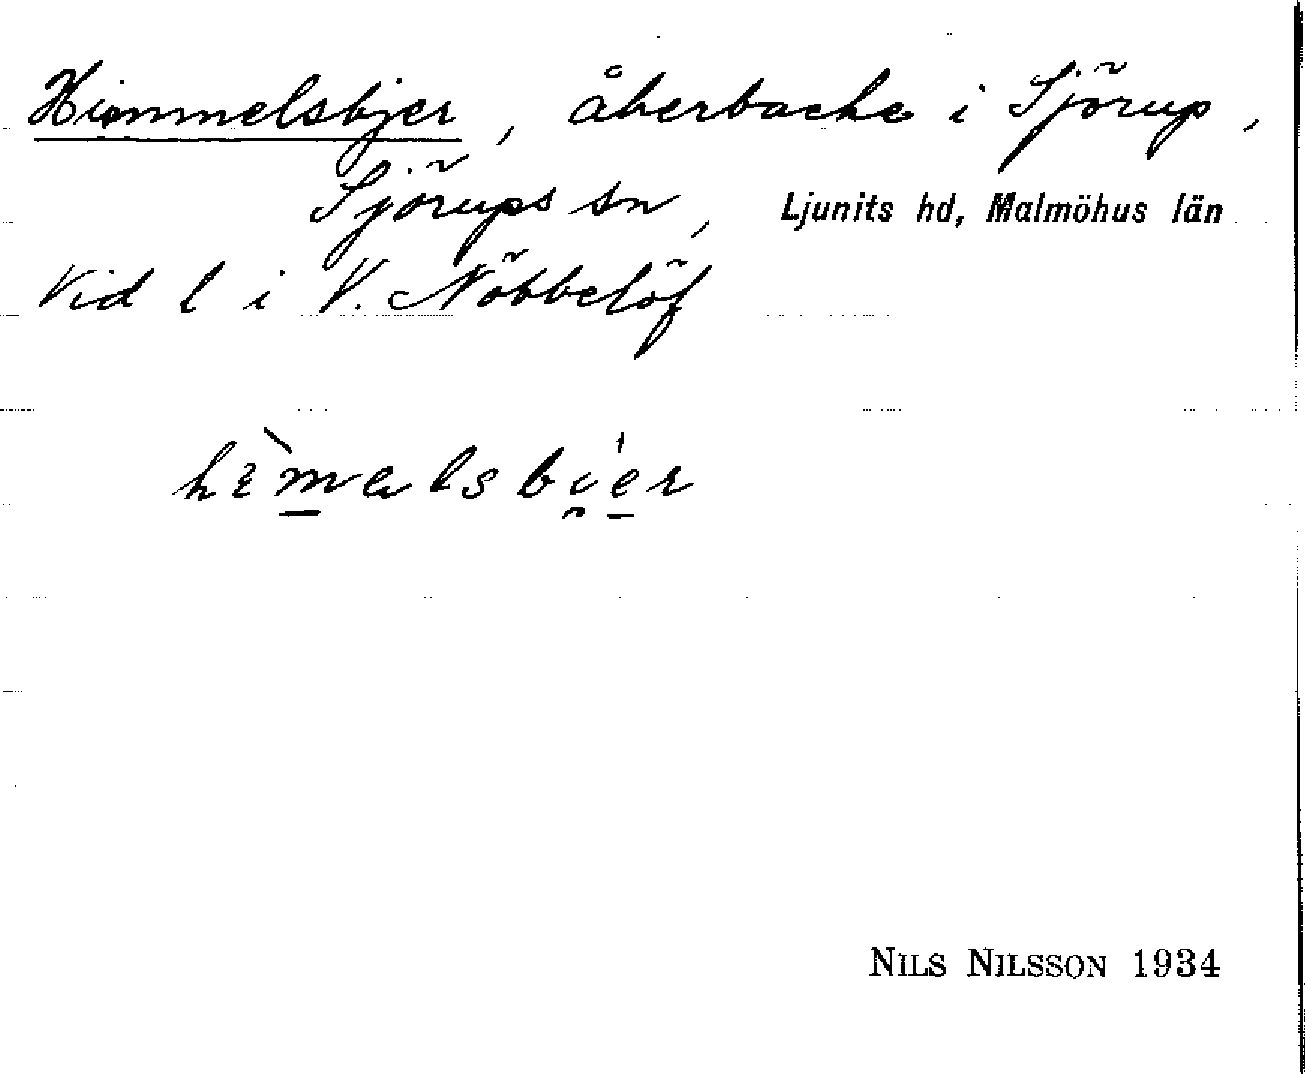 Himmelsbjer, åkerbacke i Sjörup,
Sjörups sn, Ljunits hd, Malmöhus län
Vid l i V. Nöbbelöf
NILS NILSSON 1934